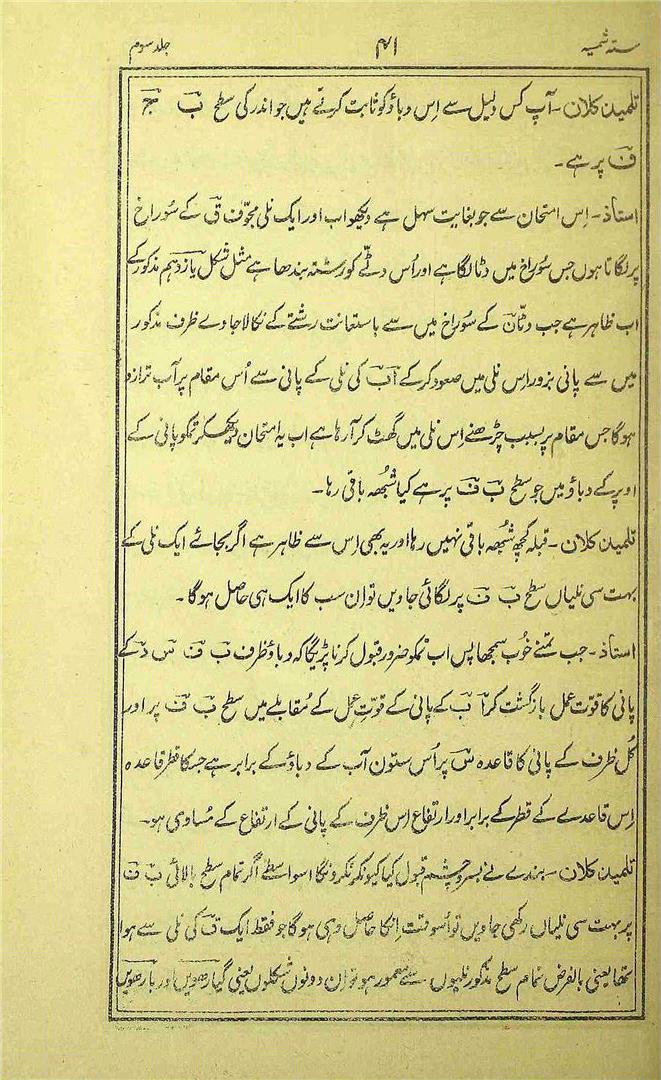 ستہ شمسیہ ۴۱ جلد سوم
تلمیذ کلان۔ آپ کس دلیل سے اِس دباؤ کو ثابت کرتے ہیں جو اندر کی سطح بَ جَ
فَ پر ہے۔
استاذ۔ اِس امتحان سے جو بغایت سہل ہے دیکھو اب اور ایک نلی مجوّف قَ کے سُوراخ
پر لگاتا ہوں جس سُوراخ میں دٹا لگا ہے اور اُس دٹّے کو رشتہ بندھا ہے مثل شکل یازدہم مذکور کے
اب ظاہر ہے جب دٹا نَ کے سُوراخ میں سے باستعانت رشتے کے نکالا جاوے ظرف مذکور
میں سے پانی بزور اِس نلی میں صعود کر کے اَبَ کی نلی کے پانی سے اُس مقام پر آب ترازو
ہوگا جس مقام پر بسبب چڑھنے اِس نلی میں گھٹ کر آ رہا ہے اب یہ امتحان دیکھکر تمکو پانی کے
اوپر کے دباؤ میں جو سطح بَ فَ پر ہے کیا شُبھہ باقی رہا۔
تلمیذ کلان۔ قبلہ کچھ شُبھہ باقی نہیں رہا اور یہ بھی اِس سے ظاہر ہے اگر بجائے ایک نلی کے
بہت سی نلیاں سطح بَ فَ پر لگائی جاویں تو اِن سب کا ایک ہی حاصل ہوگا۔
استاذ۔ جب تمنے خوُب سمجھا پس اب تمکو ضرور قبول کرنا پڑیگا کہ دباؤ ظرف بَ فَ سَ دَ کے
پانی کا قوّت عمل بازگشت کر اَ بَ کے پانی کے قوّتِ عمل کے مُقابلے میں سطح بَ فَ پر اور
کُل ظرف کے پانی کا قاعدہ سَ پر اُس ستون آب کے دباؤ کے برابر ہے جسکا قطر قاعدہ
اِس قاعدے کے قطر کے برابر اور ارتفاع اس ظرف کے پانی کے ارتفاع کے مُساوی ہو۔
تلمیذ کلان۔ بندے نے بسر و چشم قبول کیا کیونکر نکرونگا اسواسطے اگر تمام سطح بالائی بَ فَ
پر بہت سی نلیاں رکھی جاویں تو اُسوقت اِنکا حاصل وہی ہوگا جو فقط ایک قَ کی نلی سے ہوا
تھا یعنی بالفرض تمام سطح مذکور نلیوں سے معمور ہو تو اِن دونوں شکلوں یعنی گیارھویں اور بارھویں